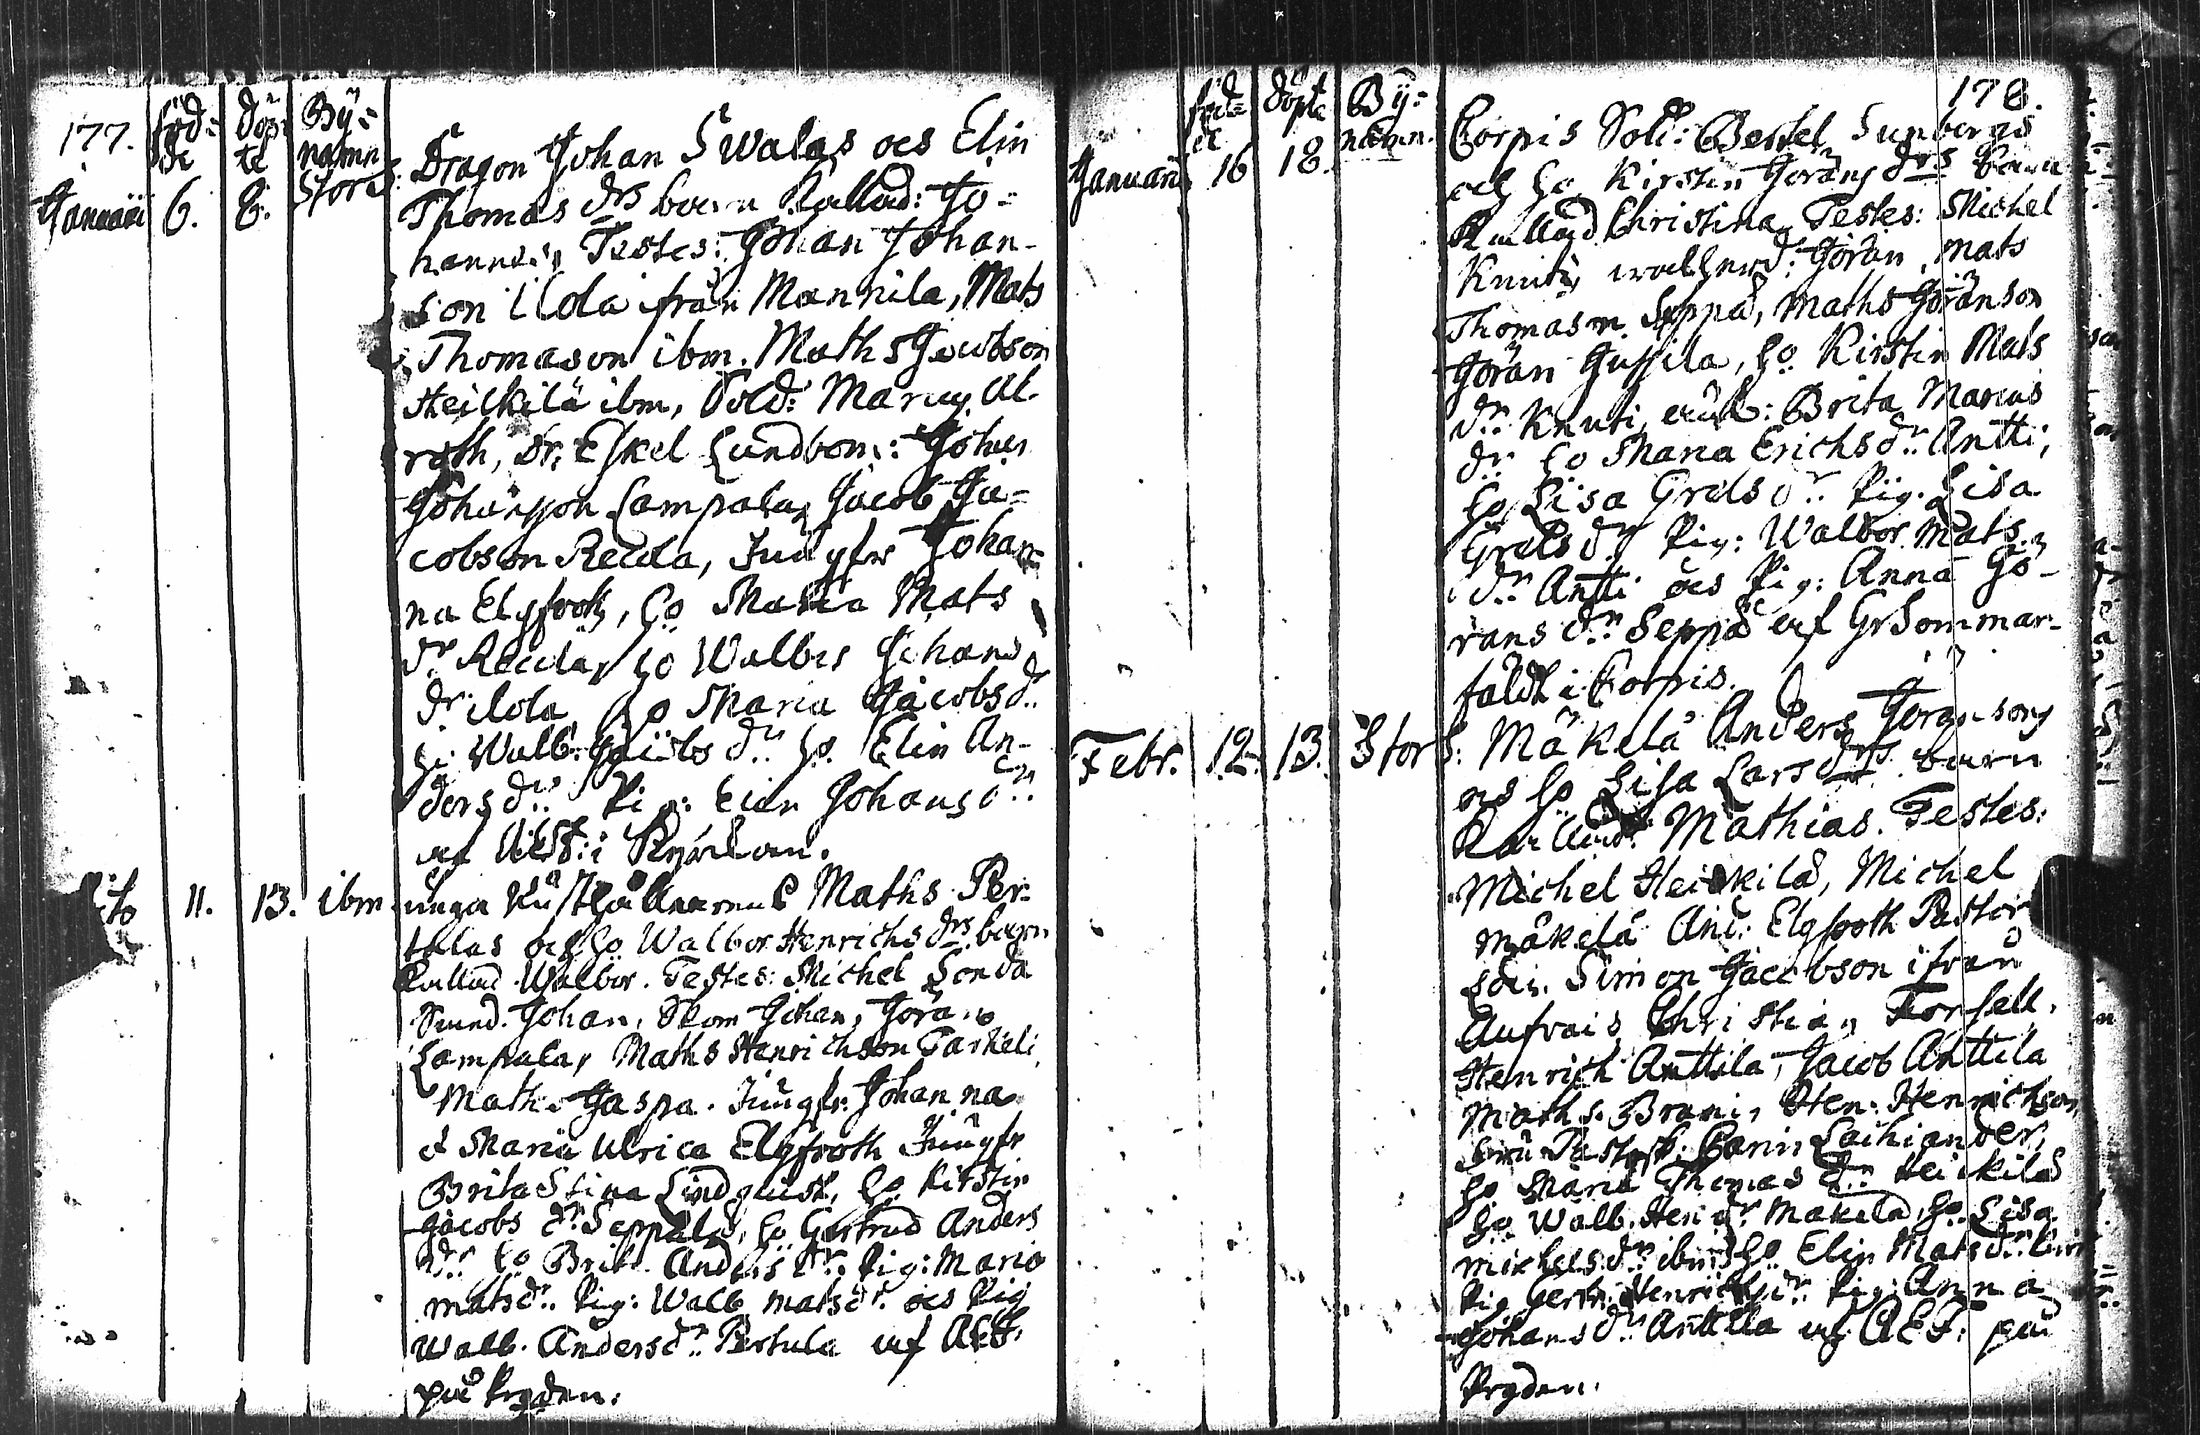 177. föd= döp= By=
de te namn
Januarii 6. 8. Storb: Dragon Johan Swalgs och Elin
Thomas drs barn kallad: Jo=
hannes, Testes: Johan Johan-
son Ilola ifrån Mannila, Mats
Thomason ibm. Maths Jacobson
Heickilä ibm, Sold: Marcus Al-
roth, Dr: Eskel Lundbom: Johan
Johansson Lampala, Jacob Ja=
cobson Recula, Jungfr Johan=
na Elgfooth, ho Maria Mats
dr Recula, ho Walbor Johans
dr ilola, ho Maria Jacobs dr
ho Walb. Jacobs dr ho Elin An-
ders dr Pig: Elin Johans dr
af i
dito 11. 13. ibm unga Maths Per-
tulas och ho Walbor Henrichs drs barn
kallad Walbor. Testes: Michel Sonda
Smed. Johan, Skom Johan, Göran
Lampala, Maths Henrichson Tarkeli
Maths Jaspa. Jungfr. Johanna
& Maria Ulrica Elgfooth Jungfr
Brita Stina Lindquist, ho Kirstin
Jacobs dr Seppälä, ho Gertrud Anders
dr ho Brita Anders dr. Pig: Maria
mats dr. Pig: Walb mats dr och Pig
Walb. Anders dr Pertula af
på Pryden.
178.
föd= döpte By=
de namn.
Januarii 16 18. Corpis Sold: Bertel Sunbergs
och ho Kirstin Görans drs barn
kallad Christina Testes: Michel
Knuti, Göran, Mats
Thomasn. Seppä, Maths Göranson
Göran Jussila, ho Kirstin Mats
dr Knuti, Brita Marcus
dr ho Maria Erichs dr Antti,
ho Lisa Grels dr Pig. Lisa
Grels dr Pig: Walbor Mats
dr Antti och Pig: Anna Gö-
rans dr Seppä af Gr Sommar-
fäldt i Corpis.
Febr. 12. 13. Storb: Mäkelä Anders Göransons
och ho Lisa Lars drs barn
kallad: Mathias. Testes:
Michel Heickilä, Michel
mäkelä And: Elgfooth Pastor
Simon Jacobson ifrån
Christian Forsell.
Henrich Anttila, Jacob Anttila
Maths. Brani, Hen: Henrichson
fru Carin Laihiander,
ho Maria Thomas dr Heickilä
ho Walb. Hen dr Mäkelä, ho Lisa
michels dr ibm ho Elin Mats dr
Pig Gertr: Henrichs dr Pig: Anna
Johans dr Anttila af på
Pryden.